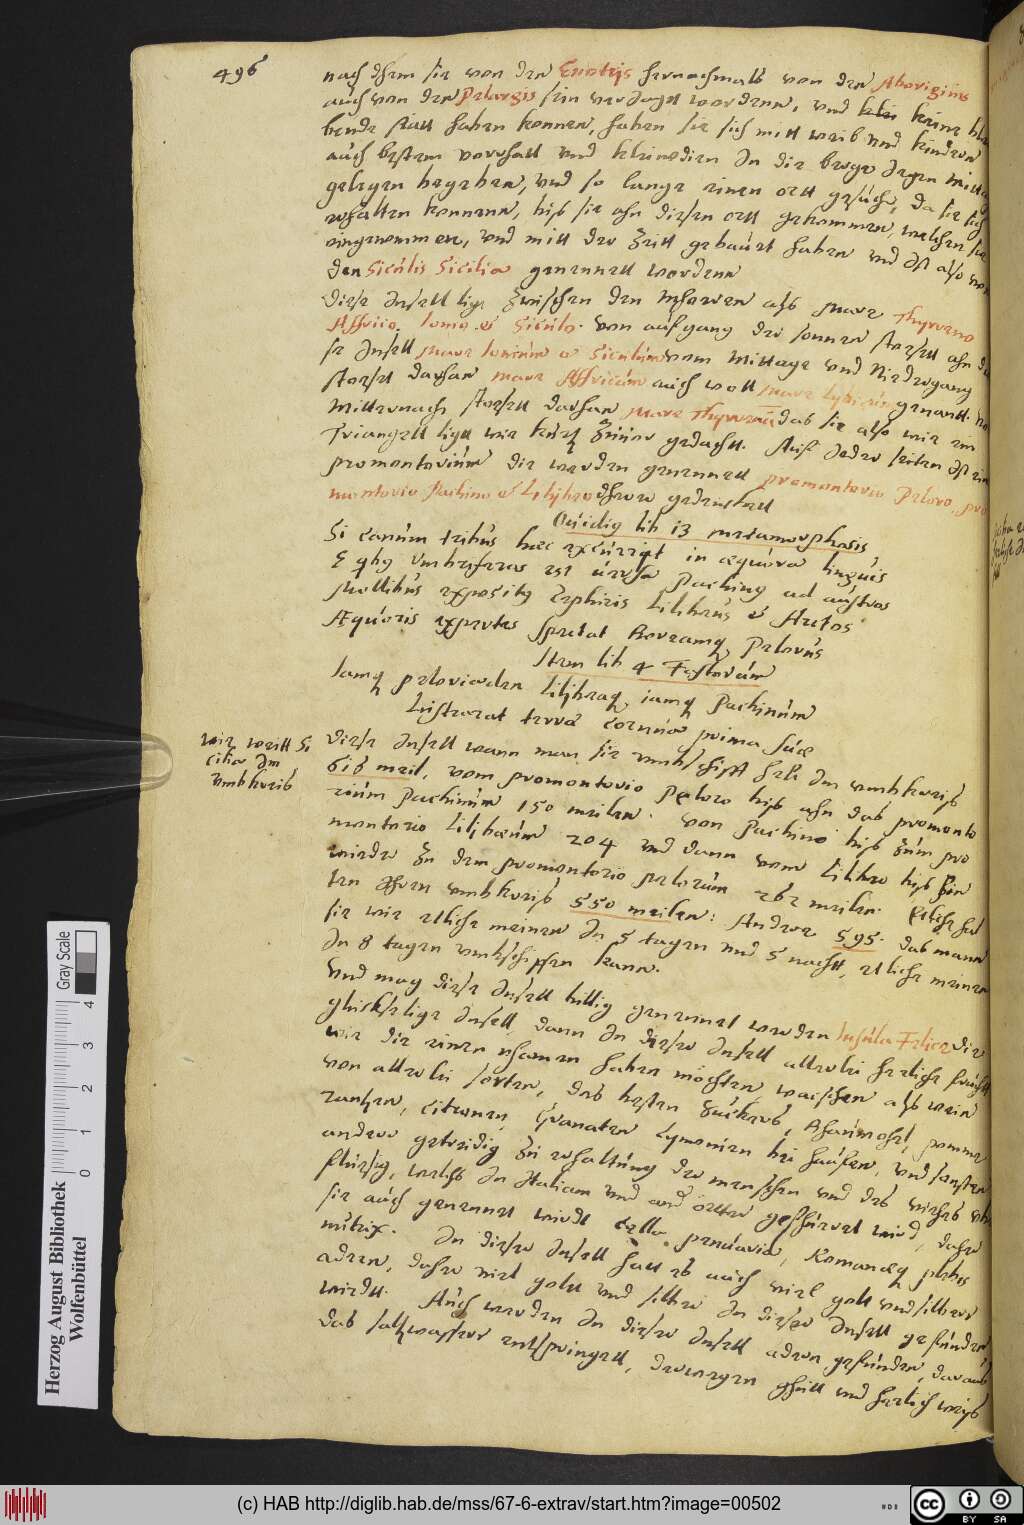 496
nach dhem sie von den Enotrijs hernachmalß von den Aboriginis
auch von den Pelasgis sein veriaget worden, und kein
bende statt haben konnen, haben sie sich mitt weib und kindern
auch bestem vorrhatt und kleinodien In die berge
gelegen begeben, und so lange einen ortt gesucht, da sie sich
erhalten konnen, biß sie ahn diesen ortt gekommen, welchen sie
eingenommen, und mitt der Zeitt gebauet haben und Ist also von
den Siculis Sicilia genennett worden
Diese Insell ligt Zwischen den Mheren alß Mare Thyrreno
Affrico, Ionio et Siculo. Von aufgang der sonnen stosset ahn die
se Insell Mare Ionium et Siculum vom Mittage und Niedergang
stosset daran Mare Affricum auch woll Mare genant. Von
Mitternach stosset daran Mare Thyrrenum das sie also wie ein
Triangell ligtt wie kurtz Zuuor gedacht. Auf Ieder seiten Ist ein
promontorium die werden genennett promontorio Peloro, pro
montorio Pachino et Lilijbeo
Ouidius lib 13 metamorphosis
Si canum tribus haec excurrit in aequora linguis
E quibus Imbriferos est uersa Pachinus ad austros
Mollibus expositus Zephiris Lilibeus et Arctos
Aequoris expertes spectat Boreamque Pelorus
Item lib 4 Fastorum
Iamque peloriaden Lilijbeaque iamque Pachinum
Lustrarat terrae cornua prima suae
Wie weitt Si
cilia Im
umbkreis
Diese Insell wann man sie umbschifft helt Im umbkreiß
616 meil, vom promontorio Peloro biß ahn daß promonto
rium Pachinum 150 meilen. von Pachino biß Zum pro
montorio Lilijbaeum 204 und dann vom Lilibeo biß hin
wieder Zu dem promontorio pelorum 262 meilen. Etliche hal
ten Ihren umbkreiß 550 meilen: Andere 595. das mann
sie wie etliche meinen In 5 tagen und 5 nacht, etliche meinen
In 8 tagen umbschiffen kann.
Und mag diese Insell billig genennet werden Insula Felice die
gluckselige Insell, dann In dieser Insell allerlei herliche frucht
wie die einen nhamen haben möchten wachsen alß wein
von allerlei sorten, des besten Zuckers, Bhaumohl, pomme
ranzen, Citronen, Granaten Lymonien bei hauffen, und sonsten
andere getreidig Zu erhaltung der menschen und des viehes uber
flussig, welchs In Italiam und andere örtter gefhüret wird, daher
sie auch genennet wirdt Cella penuaria, Romanaeque plebis
nutrix. In dieser Insell hatt es auch viel golt und silbers
adern, daher viel golt und silber In dieser Insell gefunden
wirdt. Auch werden In dieser Insell adern gefunden, daraus
das saltzwassers entspringett, derwegen ghutt und herlich weiß
Herzog August Bibliothek
Wolfenbüttel
0 1 2 3 4
Gray Scale
(c) HAB http://diglib.hab.de/mss/67-6-extrav/start.htm?image=00502
cc BY SA